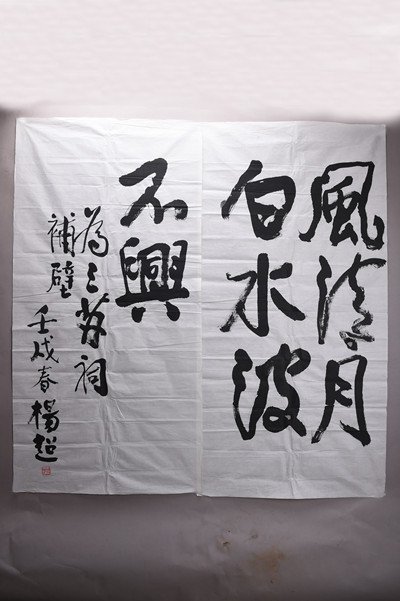 風清月
白水波
不興
為三苏祠
補壁
壬戌春楊超